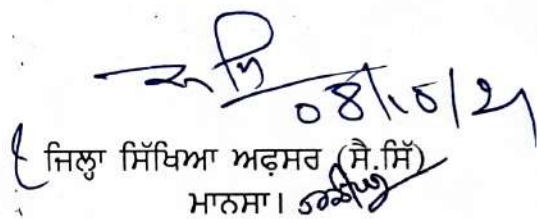 08/10/21
ਜ਼ਿਲ੍ਹਾ ਸਿੱਖਿਆ ਅਫ਼ਸਰ (ਸੈ.ਸਿੱ)
ਮਾਨਸਾ।